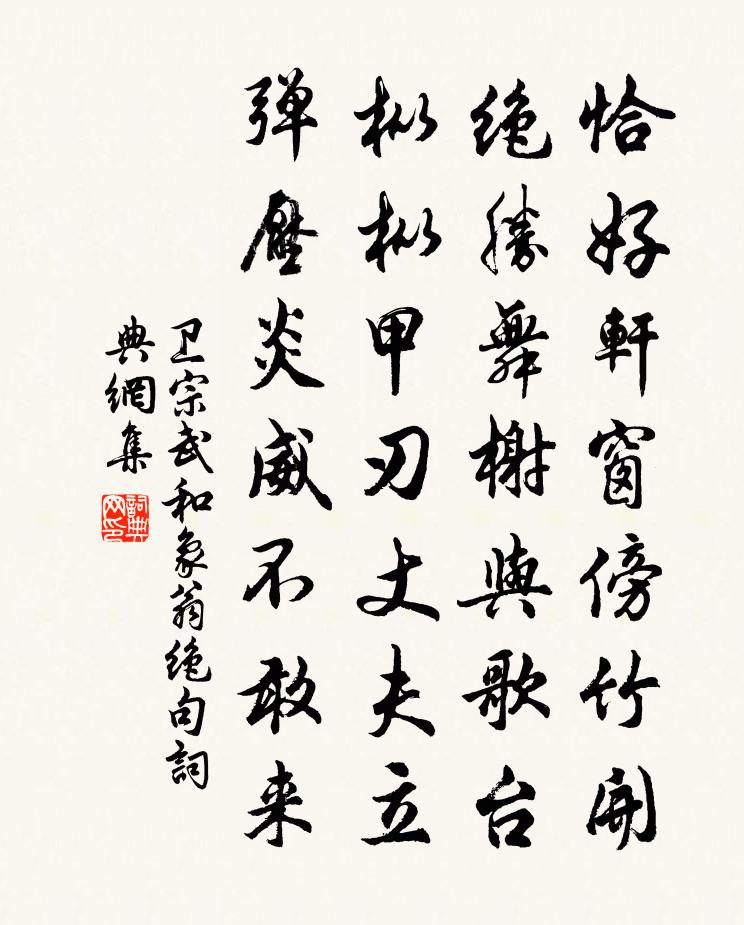 恰好軒窗傍竹開
绝勝舞榭與歌台
枞枞甲刃丈夫立
弹壓炎威不敢来
卫宗武和象翁绝句詞
典網集
詞典网印